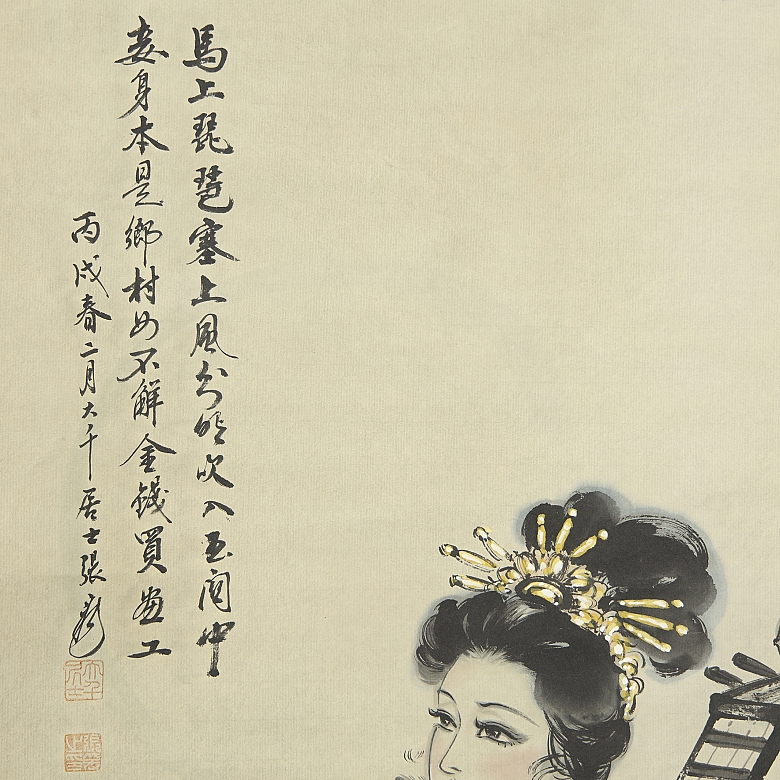 馬上琵琶塞上風分明吹入玉關中
妾身本是鄉村女不解金錢買畫工
丙戌春二月大千居士張爰